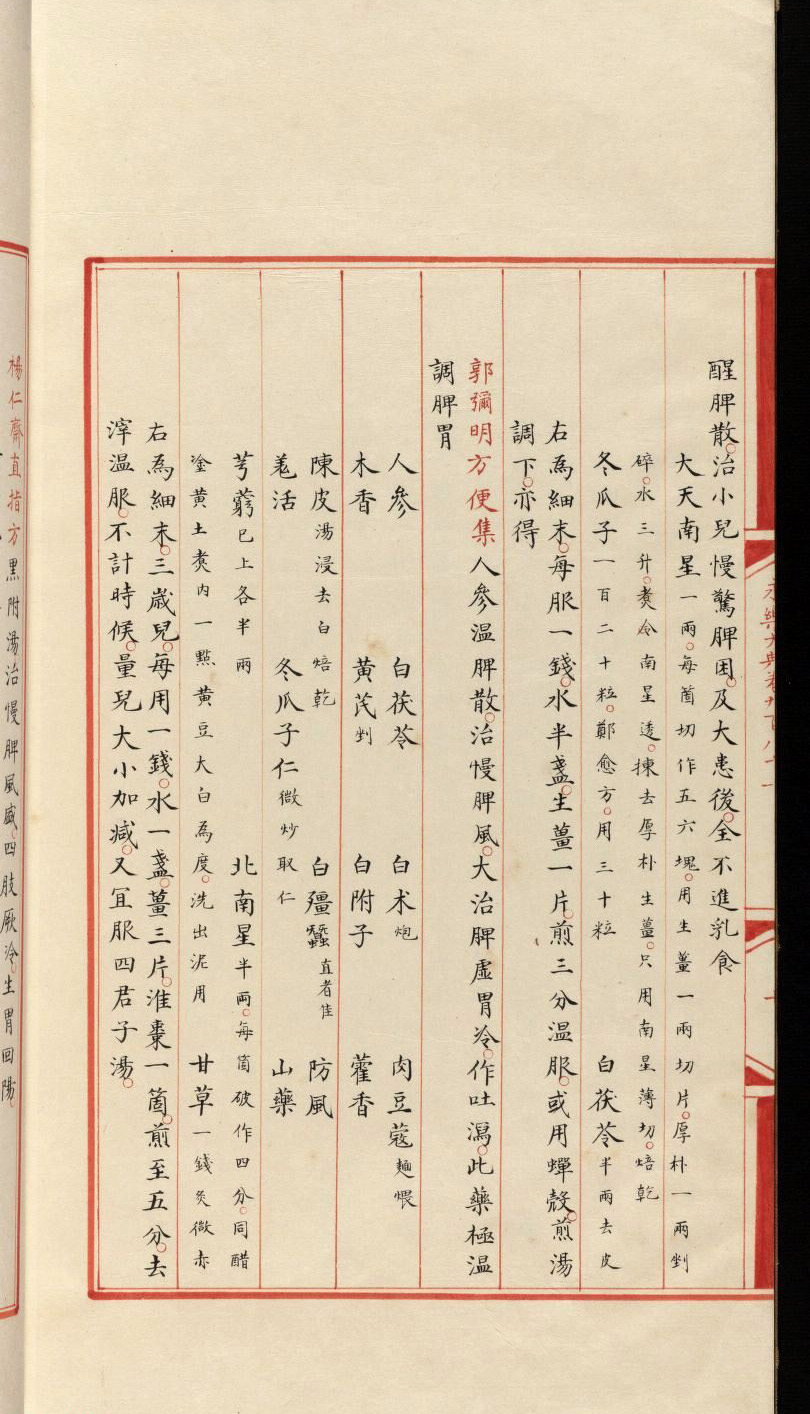 永樂大典卷九百八十一
醒脾散。治小兒慢驚脾困。及大患後。全不進乳食
大天南星一兩。每箇切作五六塊。用生薑一兩切片。厚朴一兩剉
碎。水三升。煑令南星透。揀去厚朴生薑。只用南星薄切。焙乾
冬瓜子一百二十粒。鄭愈方。用三十粒 白茯苓半兩去皮
右為細末。每服一錢。水半盞。生薑一片。煎三分温服。或用蟬殼。煎湯
調下。亦得
郭彌明方便集人參温脾散。治慢脾風。大治脾虛胃冷。作吐瀉。此藥極温
調脾胃
人參 白茯苓 白术炮 肉豆蔻麵煨
木香 黃芪剉 白附子 藿香
陳皮湯浸去白焙乾 白殭蠶直者佳 防風
羗活 冬瓜子仁微炒取仁 山藥
芎藭已上各半兩 北南星半兩。每箇破作四分。同醋
塗黃土煑內一㸃黃豆大白為度。洗出泥用 甘草一錢炙微赤
右為細末。三歲兒。每用一錢。水一盞。薑三片。淮棗一箇。煎至五分。去
滓温服。不計時候。量兒大小加減。又冝服四君子湯。
楊仁齋直指方黑附湯治慢脾風盛。四肢厥冷。生胃回陽。